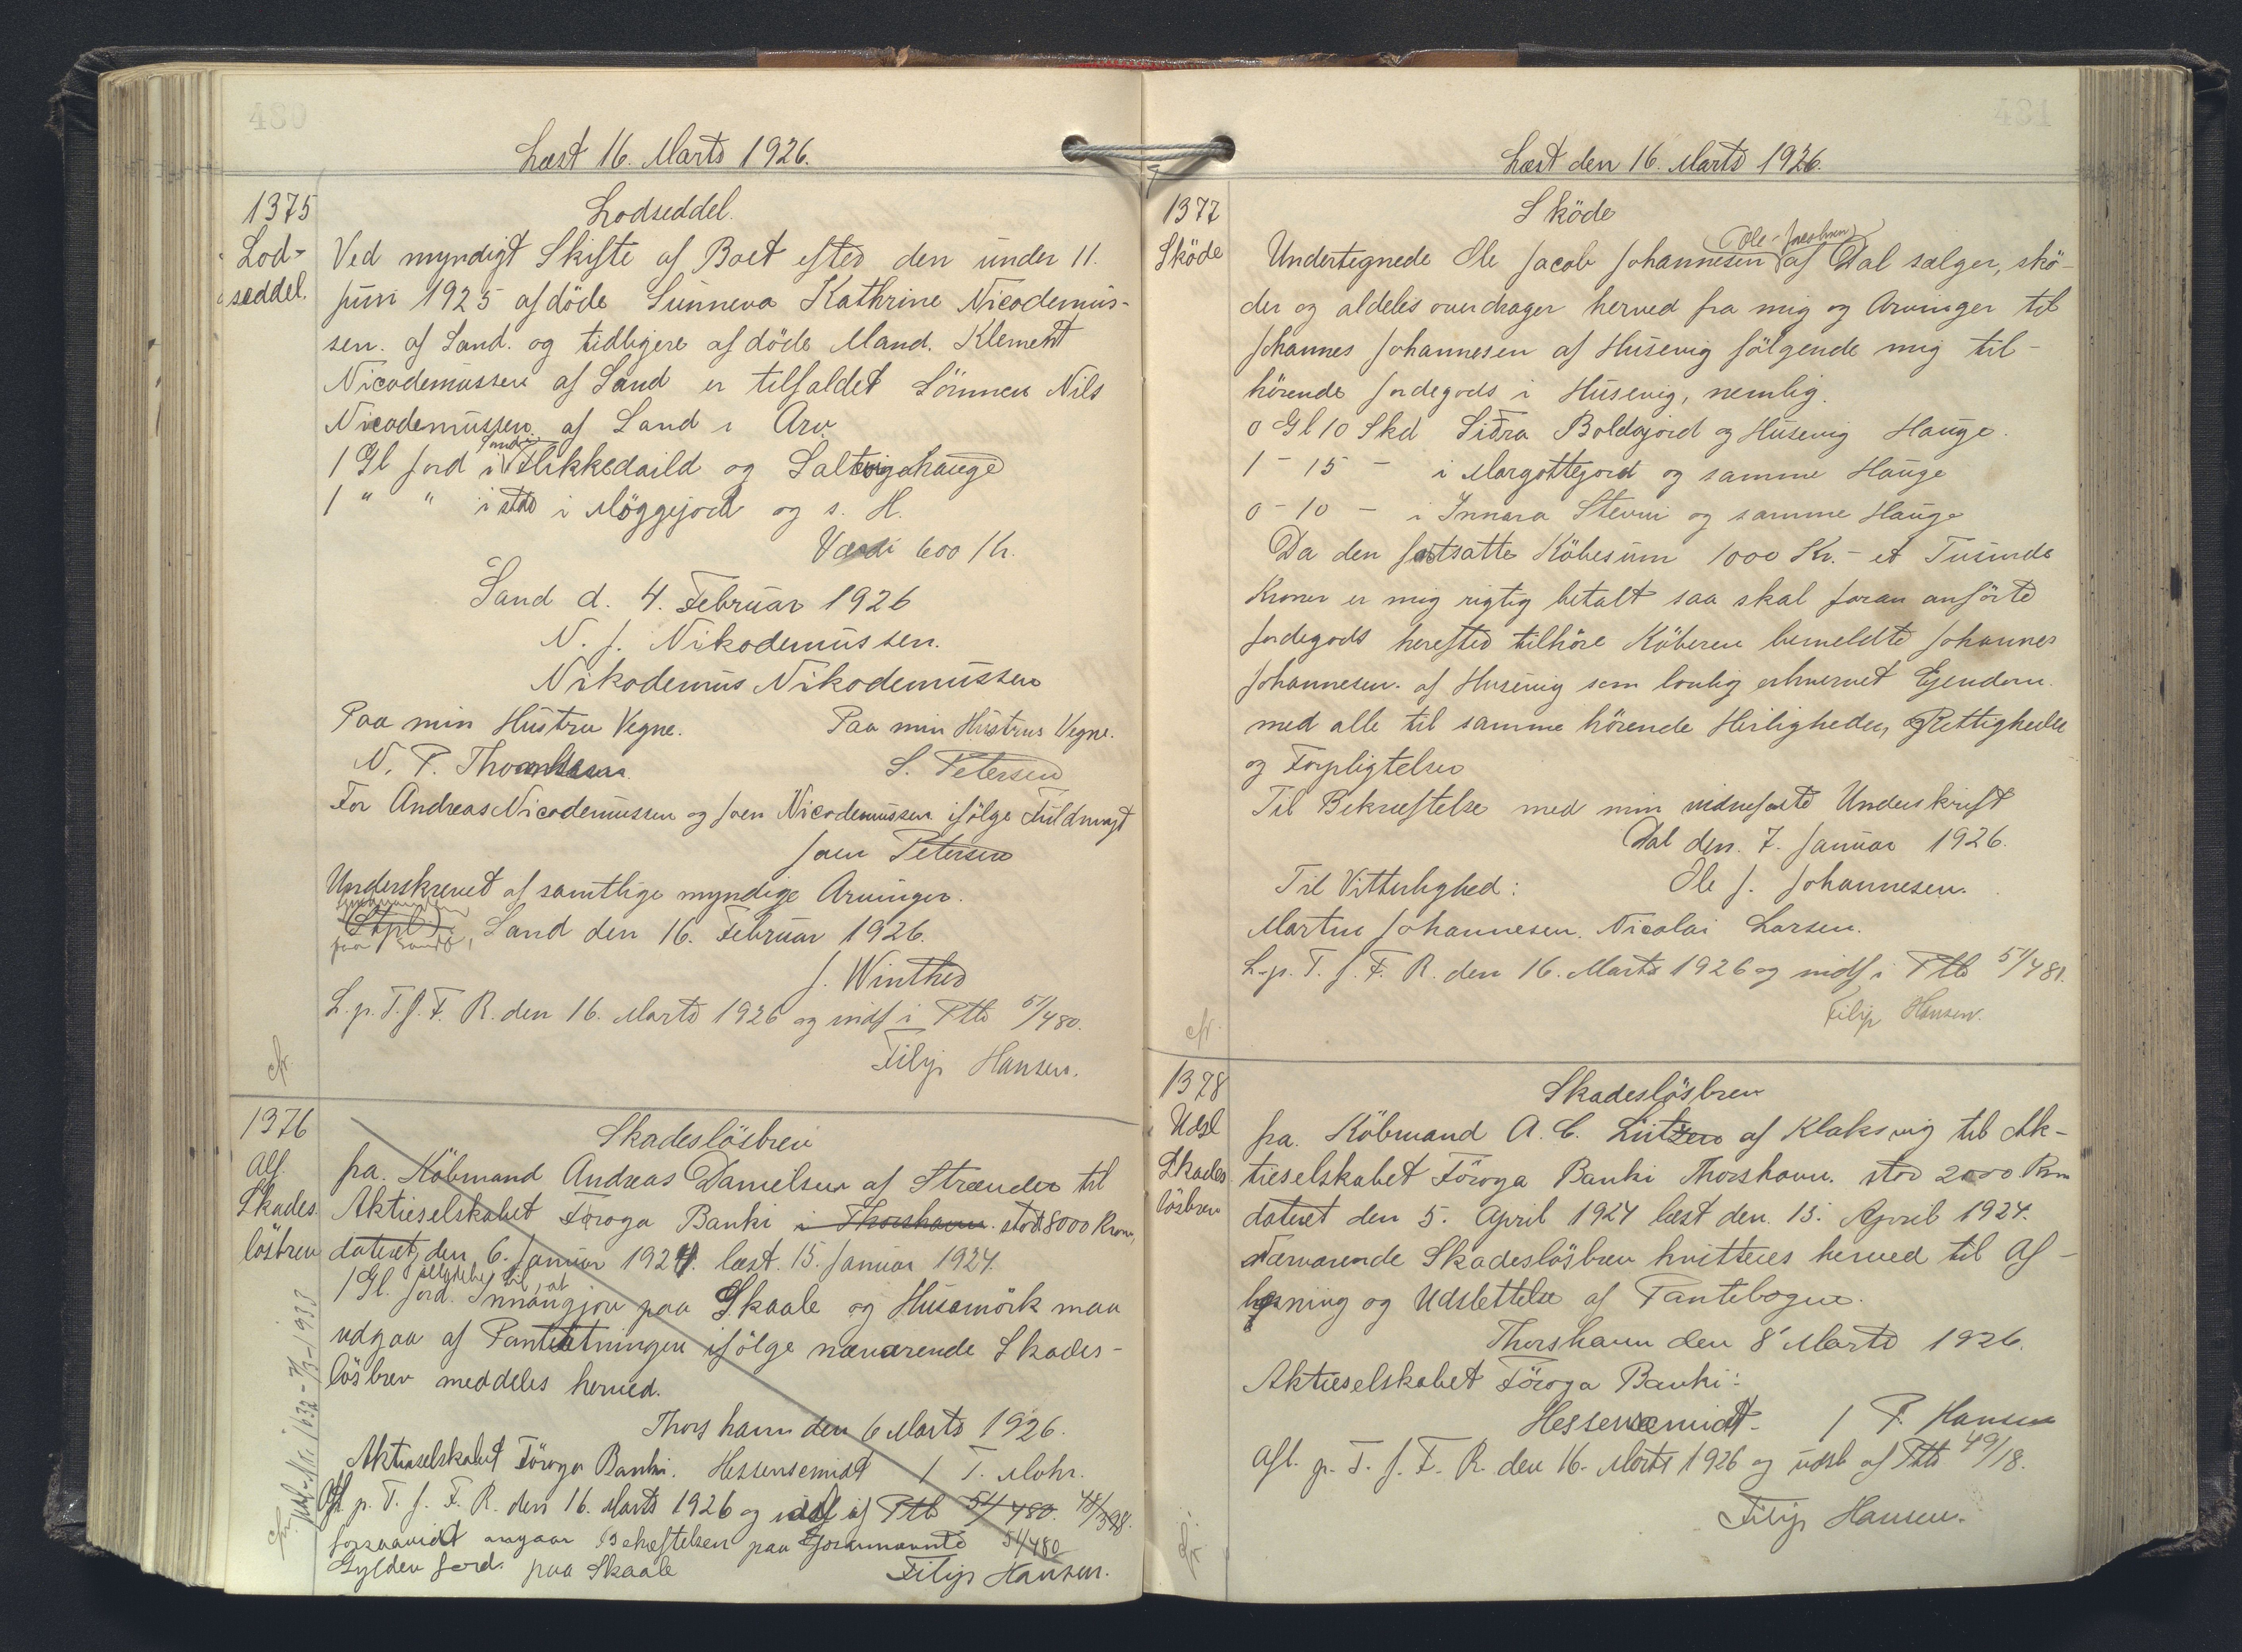 480
Læst 16. Marts 1926.
1375
Lod-
seddel.
Lodseddel.
Ved myndigt Skifte af Boet efter den under 11.
Juni 1925 afdöde Sunneva Kathrine Nicodemus-
sen. af Sand. og tidligere afdöde Mand. Klement
Nicodemussen af Sand er tilfaldet Sönnen Nils
Nicodemussen. af Sand i Arv.
1 Gl Jord i Flikkedaild og Saltvigahauge
1 " " i i Möggejord og s. H.
Værdi 600 Kr.
Sand d. 4. Februar 1926
N. J. Nikodemussen.
Nikodemus Nikodemussen
Paa min Hustru Vegne. Paa min Hustrus Vegne.
N. P. S. Petersen
For Andreas Nicodemussen og Joen Nicodemussen ifölge Fuldmagt
Joen Petersen
Underskrevet af samtlige myndige Arvinger.
(Stpl.) Sand den 16. Februar 1926.
J. Winther
L. p. T. f. F. R. den 16. Marts 1926 og indf i Ptb 51/480.
Filip Hansen.
cfr.
1376
Afl.
Skades
lösbrev
Skadeslösbrev
fra. Köbmand Andreas Danielsen af Strænder til
Aktieselskabet Föroya Banki i Thorshavn. stort 8000 Kron,
dateret, den 6. Januar 1924. læst. 15. Januar 1924.
Tilladelse til, at
1 Gl. Jord. Innangjov paa Skaale og Husamörk maa
udgaa af Pantsætningen ifölge nærværende Skades-
lösbrev meddeles herved.
Thorshavn den 6 Marts 1926.
Aktieselskabet Föroya Banki. Hessensemidt / T. Mohr.
Afl p. T. f. F. R. den 16. Marts 1926 og udsl af Ptb 51/480. 48/398.
forsaavidt angaar Behæftelsen paa fornævnte 51/480
Gylden Jord. paa Skaale Filip Hansen.
481
Læst den 16. Marts 1926.
1377
Sköde
Sköde
(Ole Jacobsen)
Undertegnede Ole Jacob Johannesen af Dal sælger, skö-
der og aldeles overdrager herved fra mig og Arvinger til
Johannes Johannesen af Husevig fölgende mig til-
hörende Jordegods i Husevig, nemlig.
0 Gl 10 Skd Sidra Boldajord og Husevig Hauge.
1 - 15 - i Margottejord og samme Hauge
0 - 10 - i Innara Stevni og samme Hauge
Da den fastsatte Köbesum 1000 Kr. - et Tusinde
Kroner er mig rigtig betalt saa skal foran anförte
Jordegods herefter tilhöre Köberen bemeldte Johannes
Johannesen. af Husevig som lovlig erhvervet Ejendom.
med alle til samme hörende Herligheder, Rettigheder
og Forpligtelser
Til Bekræftelse med min vidnefaste Underskrift
Dal den. 7. Januar 1926.
Til Vitterlighed: Ole J. Johannesen.
Martin Johannesen. Nicolai Larsen.
L. p. T. f. F. R. den 16. Marts 1926 og indf i Ptb 51/481.
Filip Hansen.
cfr.
1378
Udsl
Skades
lösbrev
Skadeslösbrev
fra. Köbmand A. C. Lützen af Klaksvig til Ak-
tieselskabet Föroya Banki Thorshavn. stor 2000 Kr
dateret den 5. April 1924 læst den. 15. April 1924.
Nærværende Skadeslösbrev kvitteres herved til Af-
læsning og Udslettelse af Pantebogen.
Thorshavn den 8' Marts 1926.
Aktieselskabet Föroya Banki:
Hessensemidt / P. Hansen
Afl. p. T. f. F. R. den 16. Marts 1926 og udsl af Ptb 49/18.
Filip Hansen.
cfr.